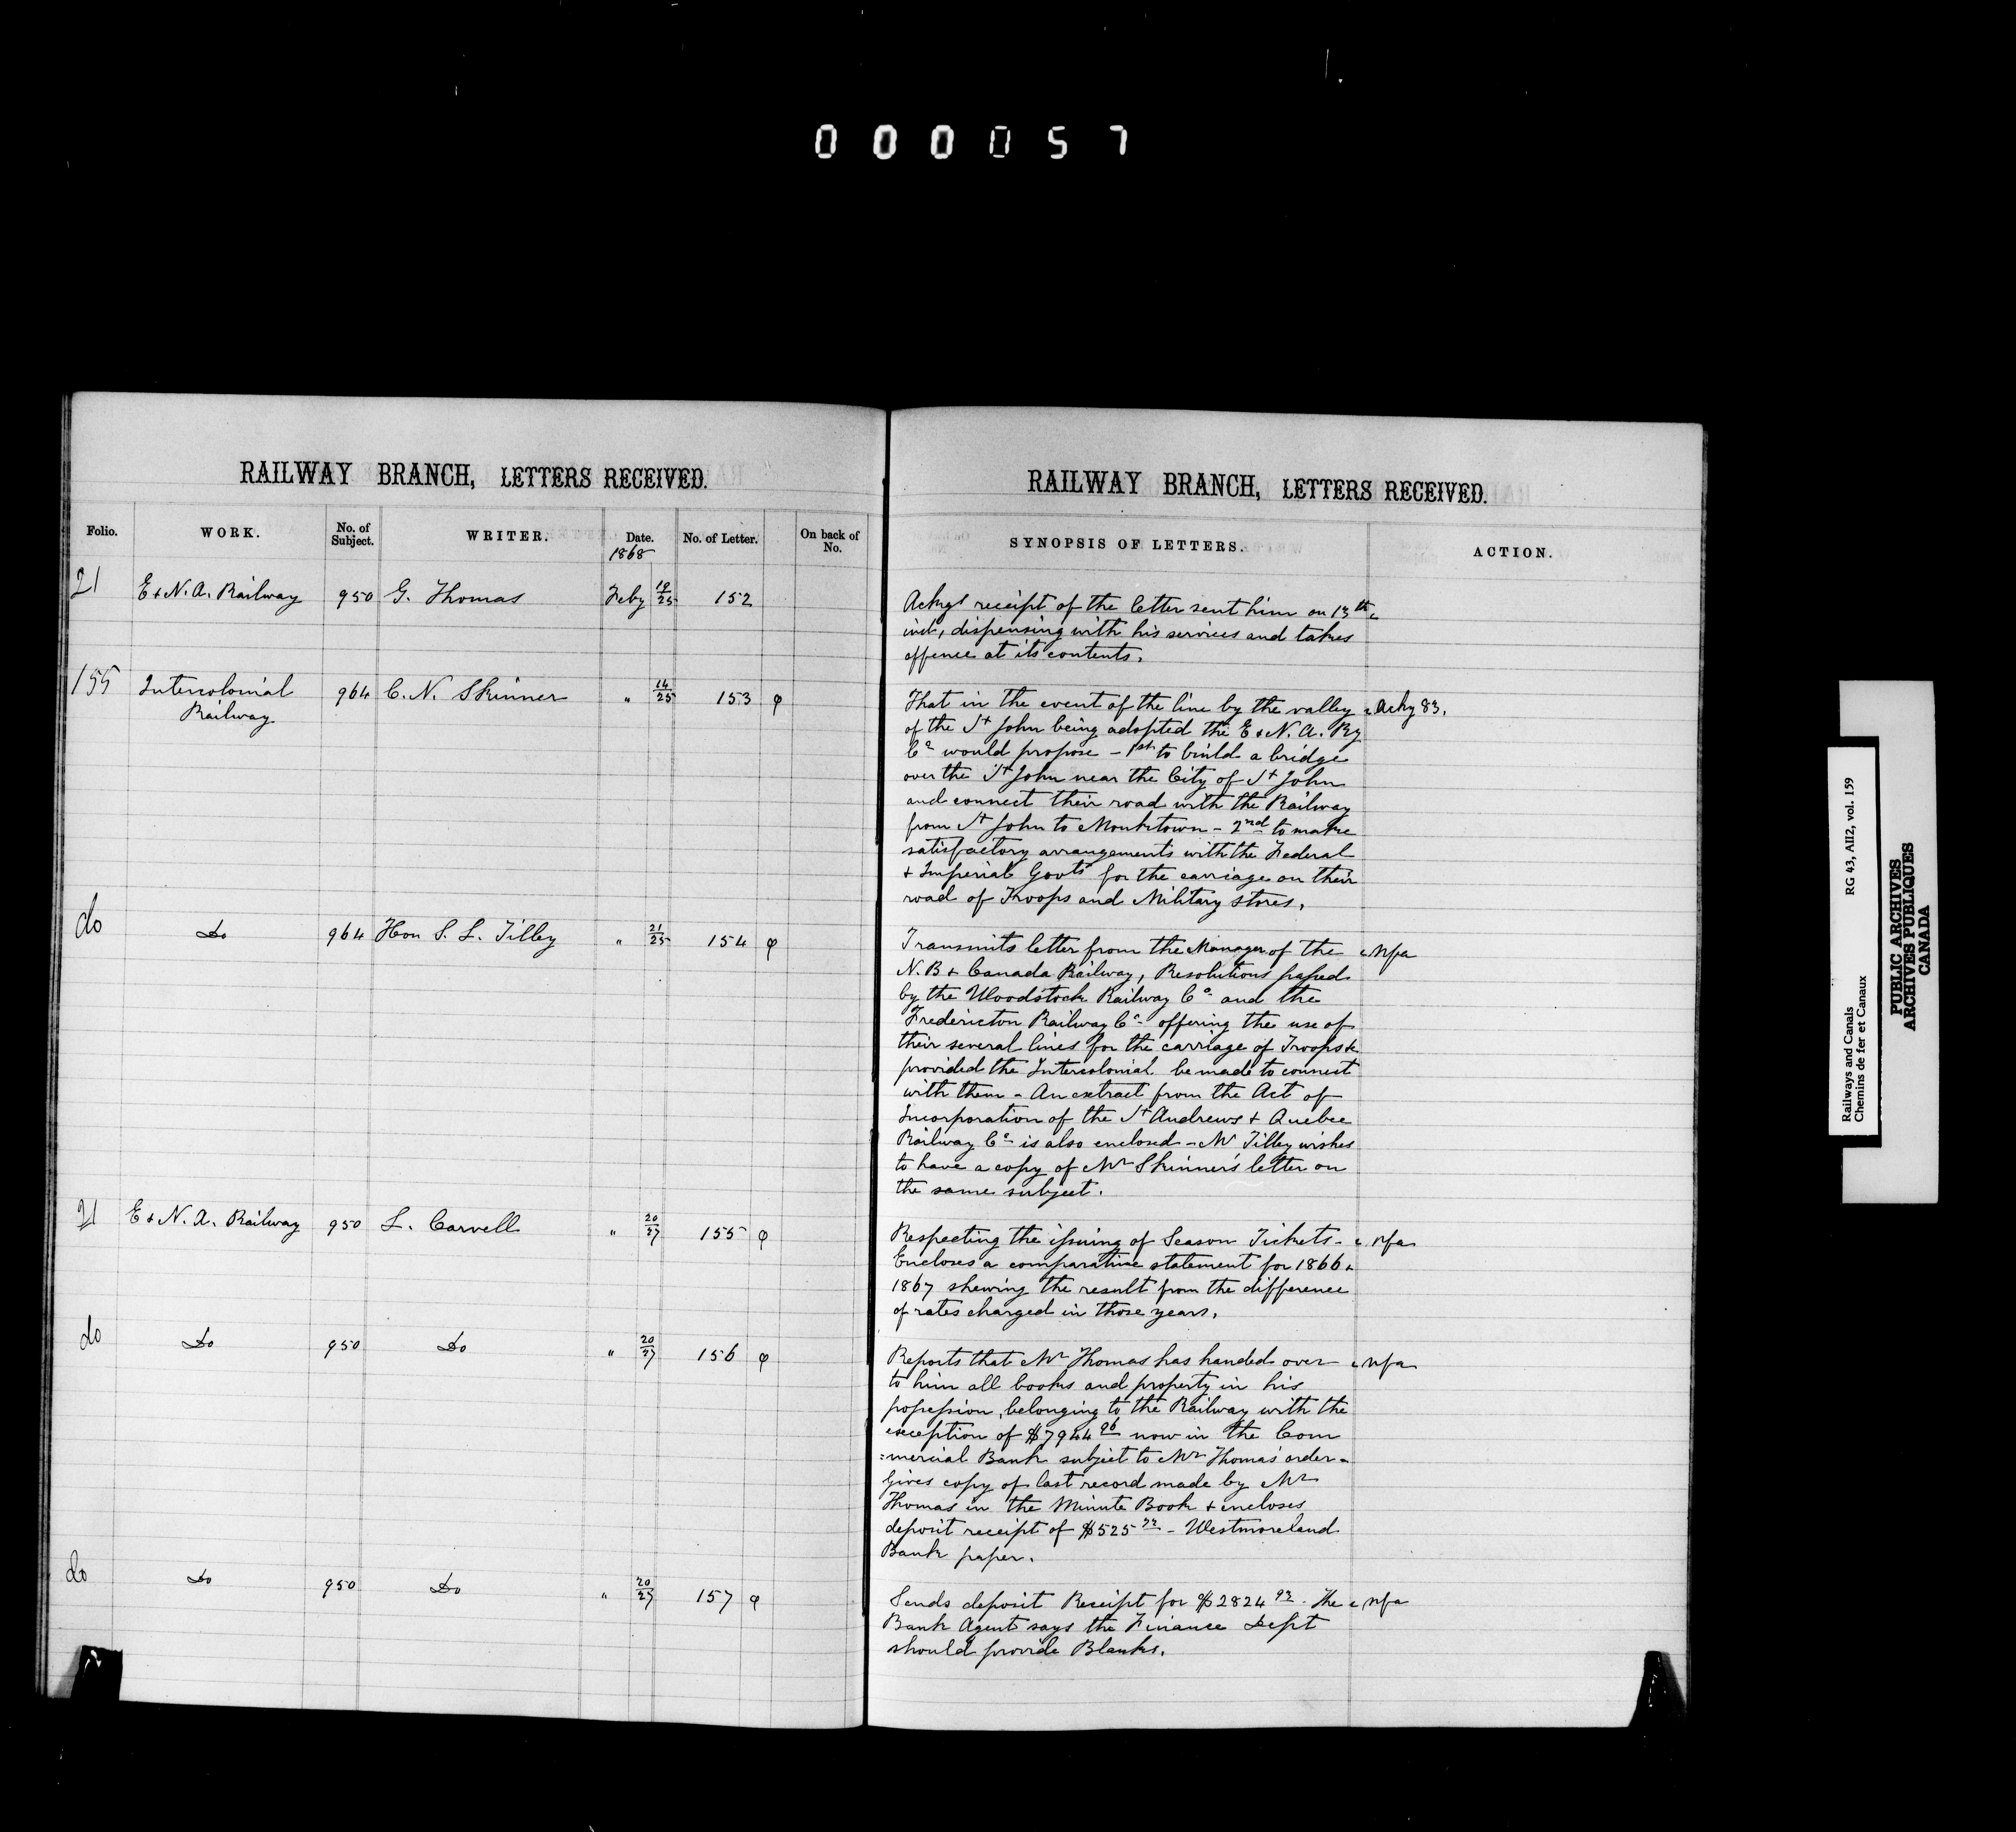 000057
RAILWAY BRANCH, LETTERS RECEIVED.
Folio. WORK. No. of Subject. WRITER. Date. No. of Letter. On back of No.
1868
21 E & N. A. Railway 950 G. Thomas Feby 19/25 152
155 Intercolonial Railway 964 C. N. Skinner " 14/25 153 φ
do Do 964 Hon S. L. Tilley " 21/25 154 φ
21 E & N. A. Railway 950 L. Carvell " 20/27 155 φ
do Do 950 Do " 20/27 156 φ
do Do 950 Do " 20/27 157 φ
RAILWAY BRANCH, LETTERS RECEIVED.
SYNOPSIS OF LETTERS. ACTION.
Ackgs receipt of the letter sent him on 13th
inst, dispensing with his services and takes
offence at its contents.
That in the event of the line by the valley Ackg 83.
of the St John being adopted the E & N. A. Ry
Co would propose - 1st to build a bridge
over the St John near the City of St John
and connect their road with the Railway
from St John to Monktown - 2nd to make
satisfactory arrangements with the Federal
& Imperial Govts for the carriage on their
road of Troops and Military stores.
Transmits letter from the Manager of the nfa
N. B & Canada Railway, Resolutions passed
by the Woodstock Railway Co and the
Fredericton Railway Co offering the use of
their several lines for the carriage of Troops &c
provided the Intercolonial be made to connect
with them - An extract from the Act of
Incorporation of the St Andrews & Quebec
Railway Co is also enclosed - Mr Tilley wishes
to have a copy of Mr Skinner's letter on
the same subject.
Respecting the issuing of Season Tickets - nfa
Encloses a comparative statement for 1866 &
1867 shewing the result from the difference
of rates charged in those years.
Reports that Mr Thomas has handed over nfa
to him all books and property in his
possession, belonging to the Railway with the
exception of $7944 96 now in the Com
=mercial Bank subject to Mr Thomas' order -
Gives copy of last record made by Mr
Thomas in the Minute Book & encloses
deposit receipt of $525 72 - Westmoreland
Bank paper.
Sends deposit Receipt for $2824 93. The nfa
Bank Agent says the Finance Dept
should provide Blanks.
Railways and Canals RG 43, AII2, vol. 159
Chemins de fer et Canaux
PUBLIC ARCHIVES
ARCHIVES PUBLIQUES
CANADA